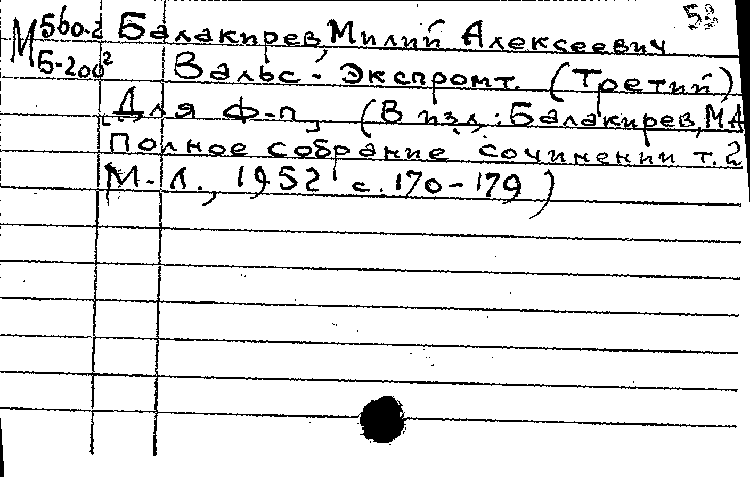 М 560-2 Балакирев, Милий Алексеевич
Б-200² Вальс-Экспромт. (Третий)
[Для ф-п] (В изд.: Балакирев, М А
Полное собрание сочинении т. 2
М.-Л., 1952 с. 170-179)